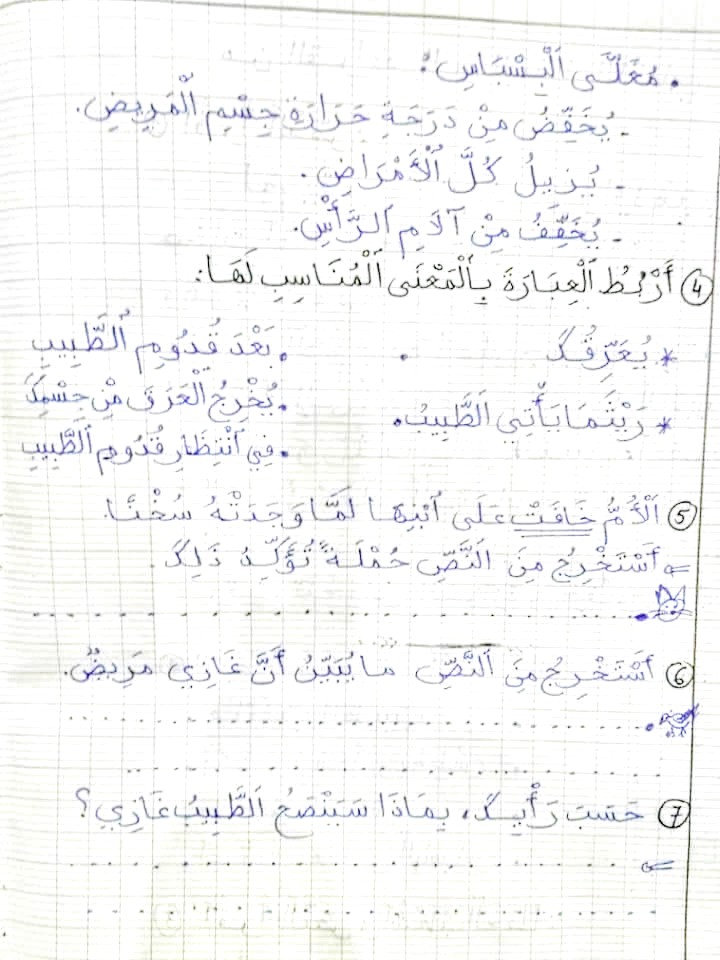 . مُغَلَّى اَلْبِسْبَاسِ :
- يُخَفِّضُ مِنْ دَرَجَةِ حَرَارَةِ جِسْمِ الْمَرِيضِ.
- يُزِيلُ كُلَّ اُلْأَمْرَاضِ.
- يُخَفِّفُ مِنْ آلَامِ اَلرَّأْسِ.
④ أَرْبُطُ اَلْعِبَارَةَ بِالْمَعْنَى اَلْمُنَاسِبِ لَهَا:
* يُعَرِّقُكَ . . بَعْدَ قُدُومِ اُلطَّبِيبِ
. يُخْرِجُ الْعَرَقَ مِنْ جِسْمِكَ
* رَيْثَمَا يَأْتِي اَلطَّبِيبُ.
. فِي اَنْتِظَارِ قُدُومِ اَلطَّبِيبِ
⑤ اَلْأُمُّ خَافَتْ عَلَى اَبْنِهَا لَمَّا وَجَدَتْهُ سُخْنًا.
⇐ أَسْتَخْرِجُ مِنَ اَلنَّصِّ جُمْلَةً تُؤَكِّدُ ذَلِكَ.
⑥ أَسْتَخْرِجُ مِنَ اَلنَّصِّ مَا يُبَيِّنُ أَنَّ غَازِي مَرِيضٌ.
⑦ حَسَبَ رَأْيِكَ، بِمَاذَا سَيَنْصَحُ اَلطَّبِيبُ غَازِي؟